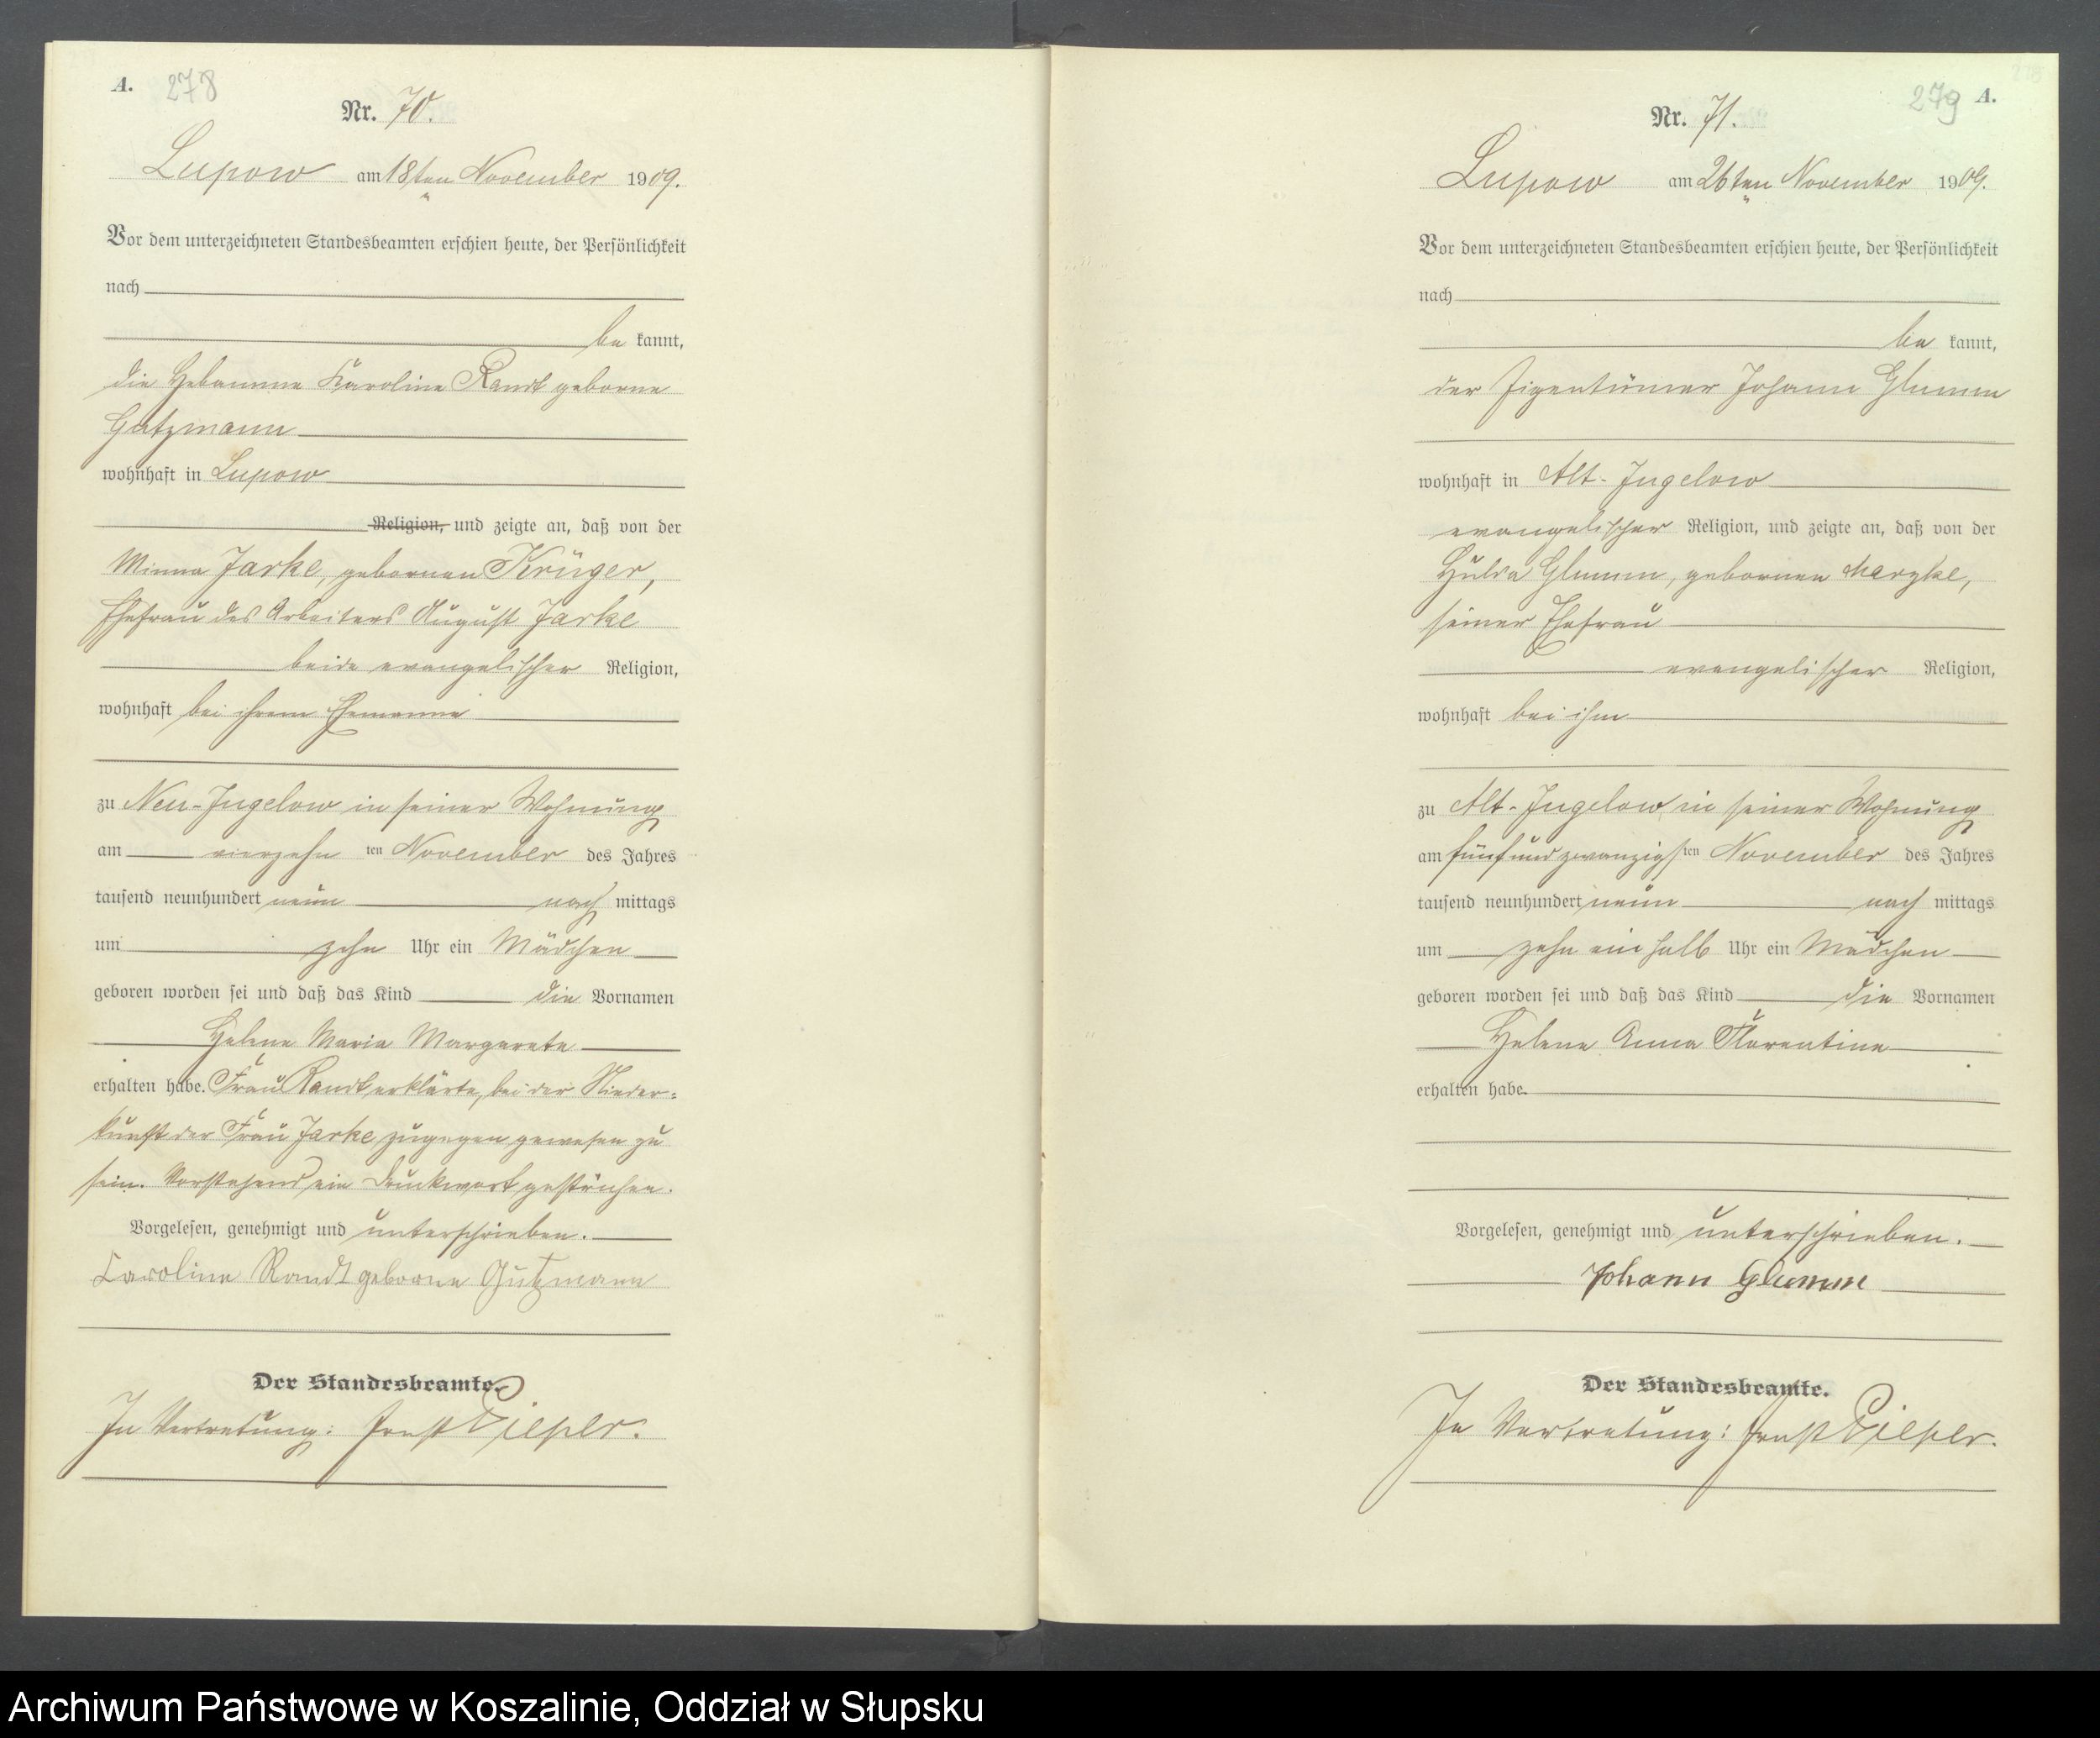 A. 278
Nr. 70.
Lupow am 18ten November 1909.
Vor dem unterzeichneten Standesbeamten erschien heute, der Persönlichkeit
nach
be kannt,
die Hebamme Karoline Randt geborne
Gutzmann
wohnhaft in Lupow
Religion, und zeigte an, daß von der
Minna Jarke, gebornen Krüger,
Ehefrau des Arbeiters August Jarke
beide evangelischer Religion,
wohnhaft bei ihrem Ehemanne
zu Neu-Jugelow in seiner Wohnung
am vierzehn ten November des Jahres
tausend neunhundert neun nach mittags
um zehn Uhr ein Mädchen
geboren worden sei und daß das Kind die Vornamen
Helene Maria Margarete
erhalten habe. Frau Randt erklärte, bei der Nieder-
kunft der Frau Jarke zugegen gewesen zu
sein. Vorstehend ein Druckwort gestrichen.
Vorgelesen, genehmigt und unterschrieben.
Caroline Randt geborne Gutzmann
Der Standesbeamte.
In Vertretung: Ernst Pieper.
279 A.
Nr. 71.
Lupow am 26ten November 1909.
Vor dem unterzeichneten Standesbeamten erschien heute, der Persönlichkeit
nach
be kannt,
der Eigentümer Johann Glumm
wohnhaft in Alt-Jugelow
evangelischer Religion, und zeigte an, daß von der
Hulda Glumm, gebornen Marzke,
seiner Ehefrau
evangelischer Religion,
wohnhaft bei ihm
zu Alt-Jugelow in seiner Wohnung
am fünfundzwanzigsten November des Jahres
tausend neunhundert neun nach mittags
um zehn ein halb Uhr ein Mädchen
geboren worden sei und daß das Kind die Vornamen
Helene Anna Florentine
erhalten habe.
Vorgelesen, genehmigt und unterschrieben.
Johann Glumm
Der Standesbeamte.
In Vertretung: Ernst Pieper.
Archiwum Państwowe w Koszalinie, Oddział w Słupsku